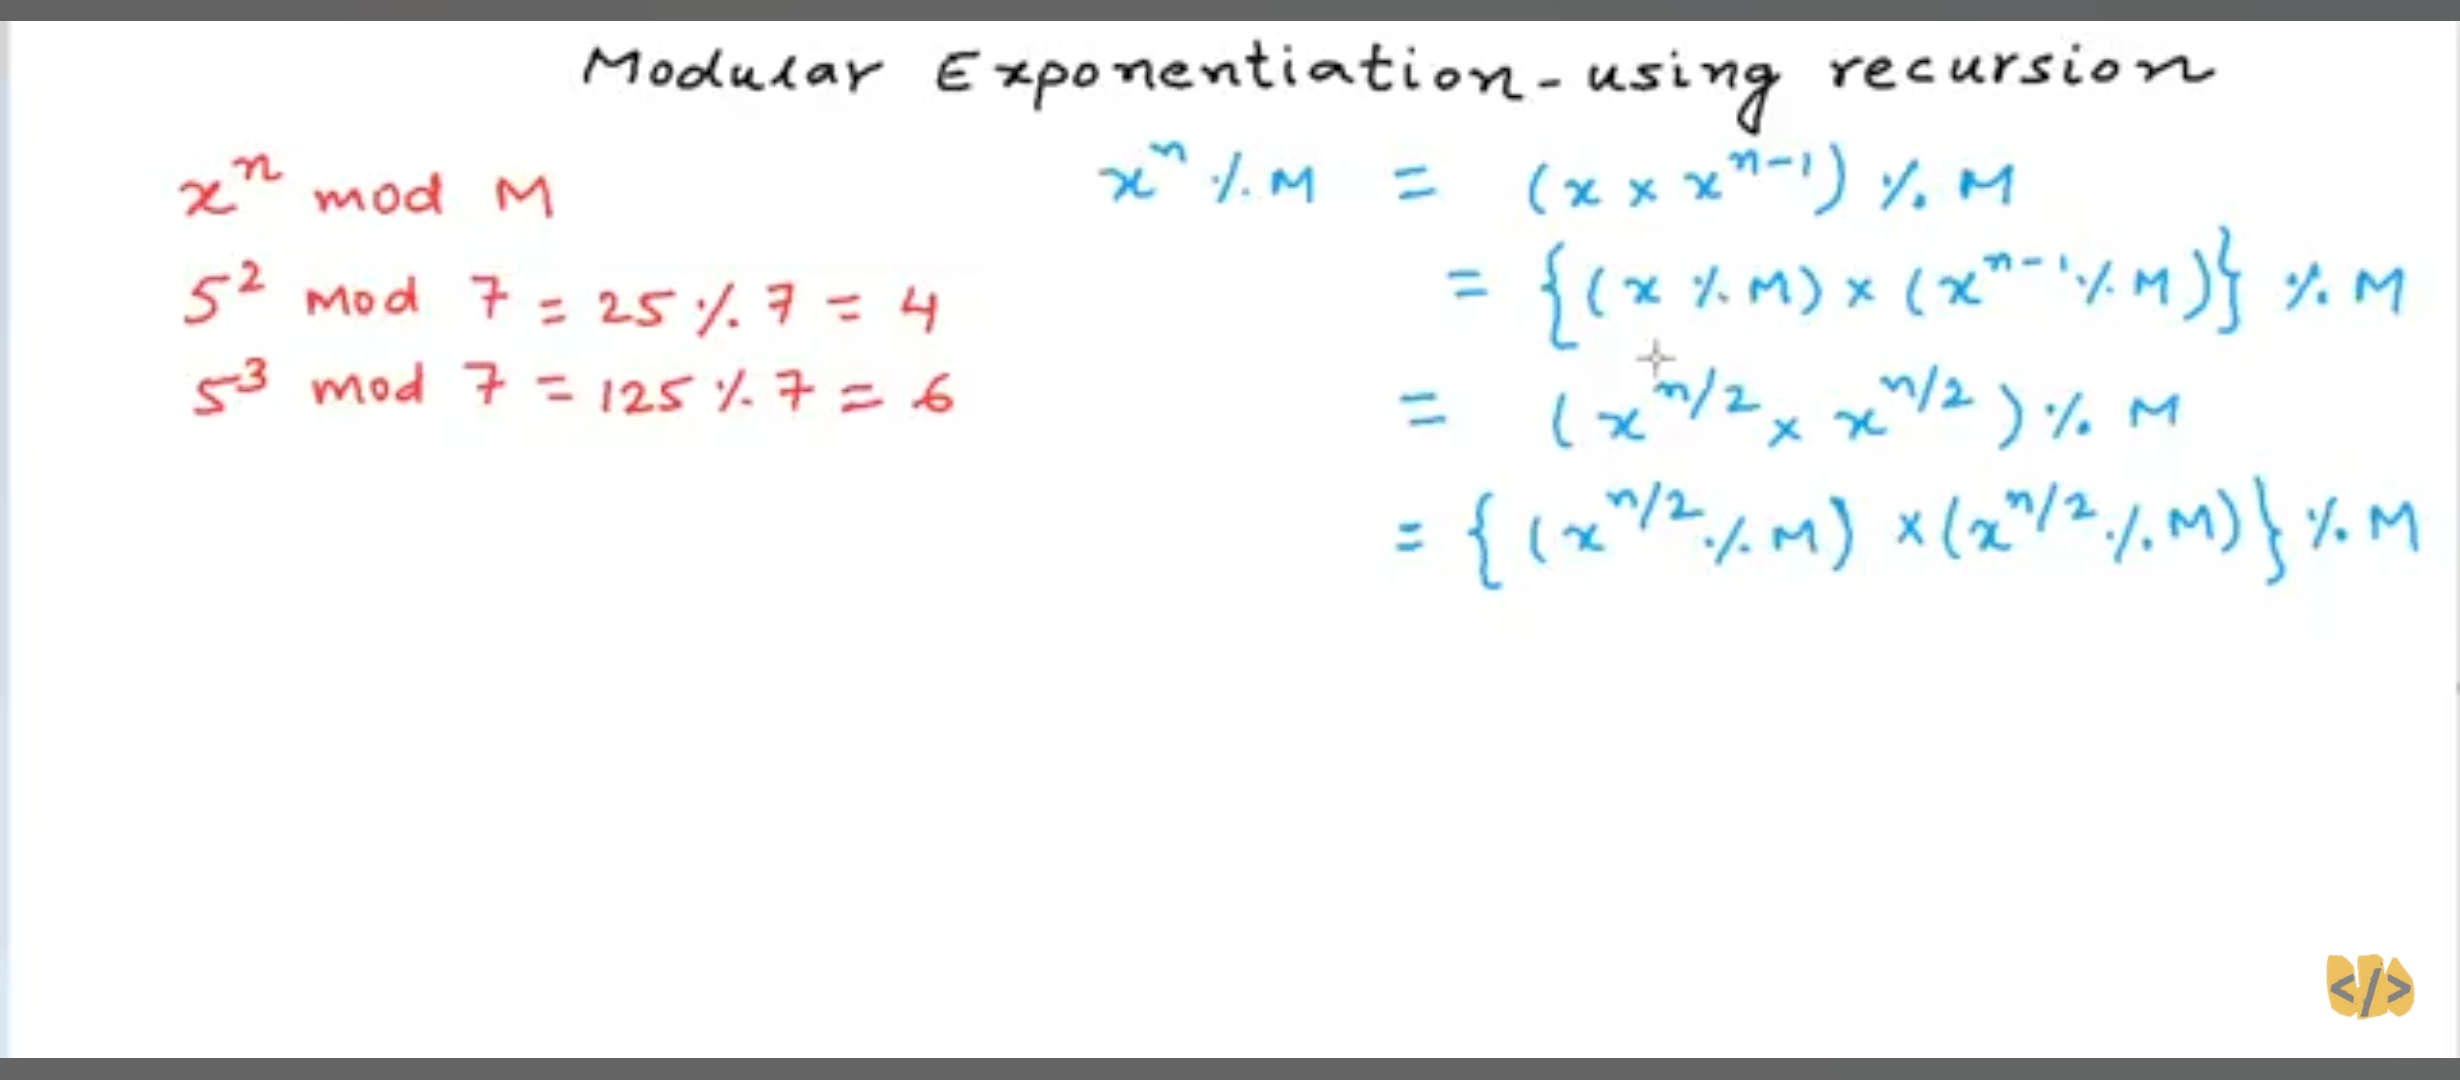 Modular Exponentiation - using recursion
xⁿ mod M
5² mod 7 = 25 % 7 = 4
5³ mod 7 = 125 % 7 = 6
xⁿ % M = (x × xⁿ⁻¹) % M
= {(x % M) × (xⁿ⁻¹ % M)} % M
= (x^(n/2) × x^(n/2)) % M
= {(x^(n/2) % M) × (x^(n/2) % M)} % M
</>